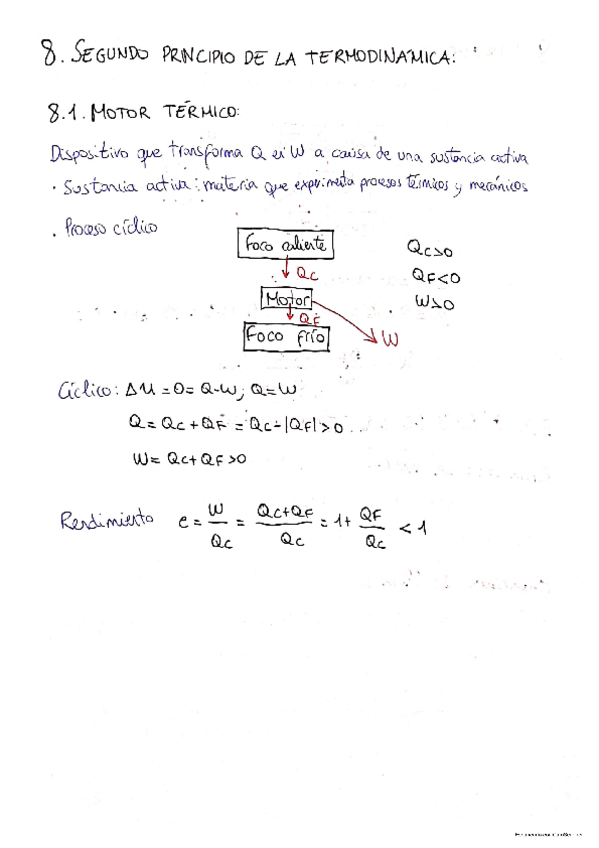 8. SEGUNDO PRINCIPIO DE LA TERMODINÁMICA:
8.1. MOTOR TÉRMICO:
Dispositivo que transforma Q en W a causa de una sustancia activa
· Sustancia activa: materia que experimenta procesos térmicos y mecánicos
· Proceso cíclico
Foco caliente
Qc
Motor
QF
Foco frío
W
Qc>0
QF<0
W>0
Cíclico: ΔU = 0 = Q-W; Q = W
Q = Qc + QF = Qc - |QF| > 0
W = Qc + QF > 0
Rendimiento e = W/Qc = (Qc+QF)/Qc = 1 + QF/Qc < 1